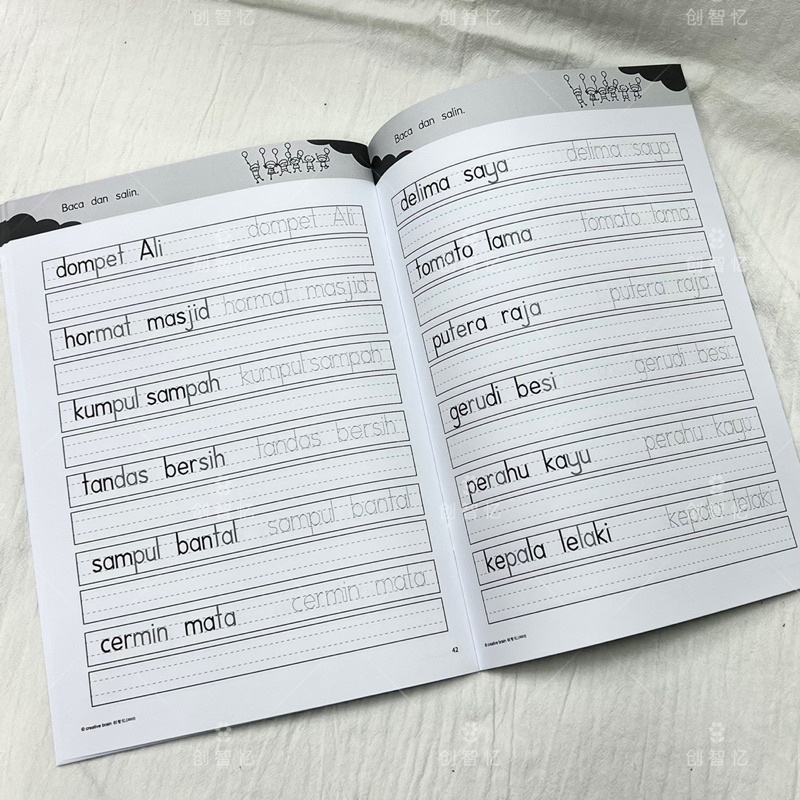 Baca dan salin.
dompet Ali dompet Ali
hormat masjid hormat masjid
kumpul sampah kumpul sampah
tandas bersih tandas bersih
sampul bantal sampul bantal
cermin mata cermin mata
© creative brain 创智忆
42
Baca dan salin.
delima saya delima saya
tomato lama tomato lama
putera raja putera raja
gerudi besi gerudi besi
perahu kayu perahu kayu
kepala lelaki kepala lelaki
© creative brain 创智忆
创智忆